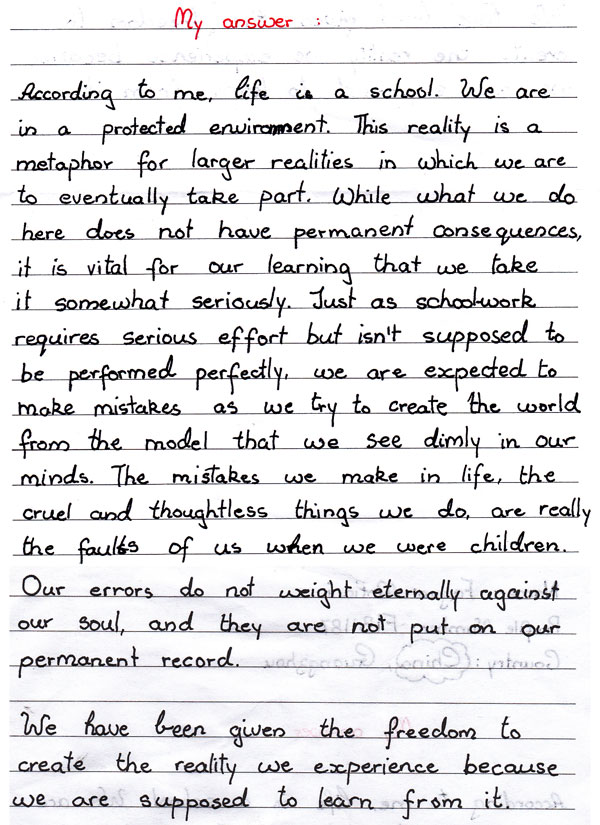 My answer :
According to me, life is a school. We are
in a protected environment. This reality is a
metaphor for larger realities in which we are
to eventually take part. While what we do
here does not have permanent consequences,
it is vital for our learning that we take
it somewhat seriously. Just as schoolwork
requires serious effort but isn't supposed to
be performed perfectly, we are expected to
make mistakes as we try to create the world
from the model that we see dimly in our
minds. The mistakes we make in life, the
cruel and thoughtless things we do, are really
the faults of us when we were children.
Our errors do not weight eternally against
our soul, and they are not put on our
permanent record.
We have been given the freedom to
create the reality we experience because
we are supposed to learn from it.